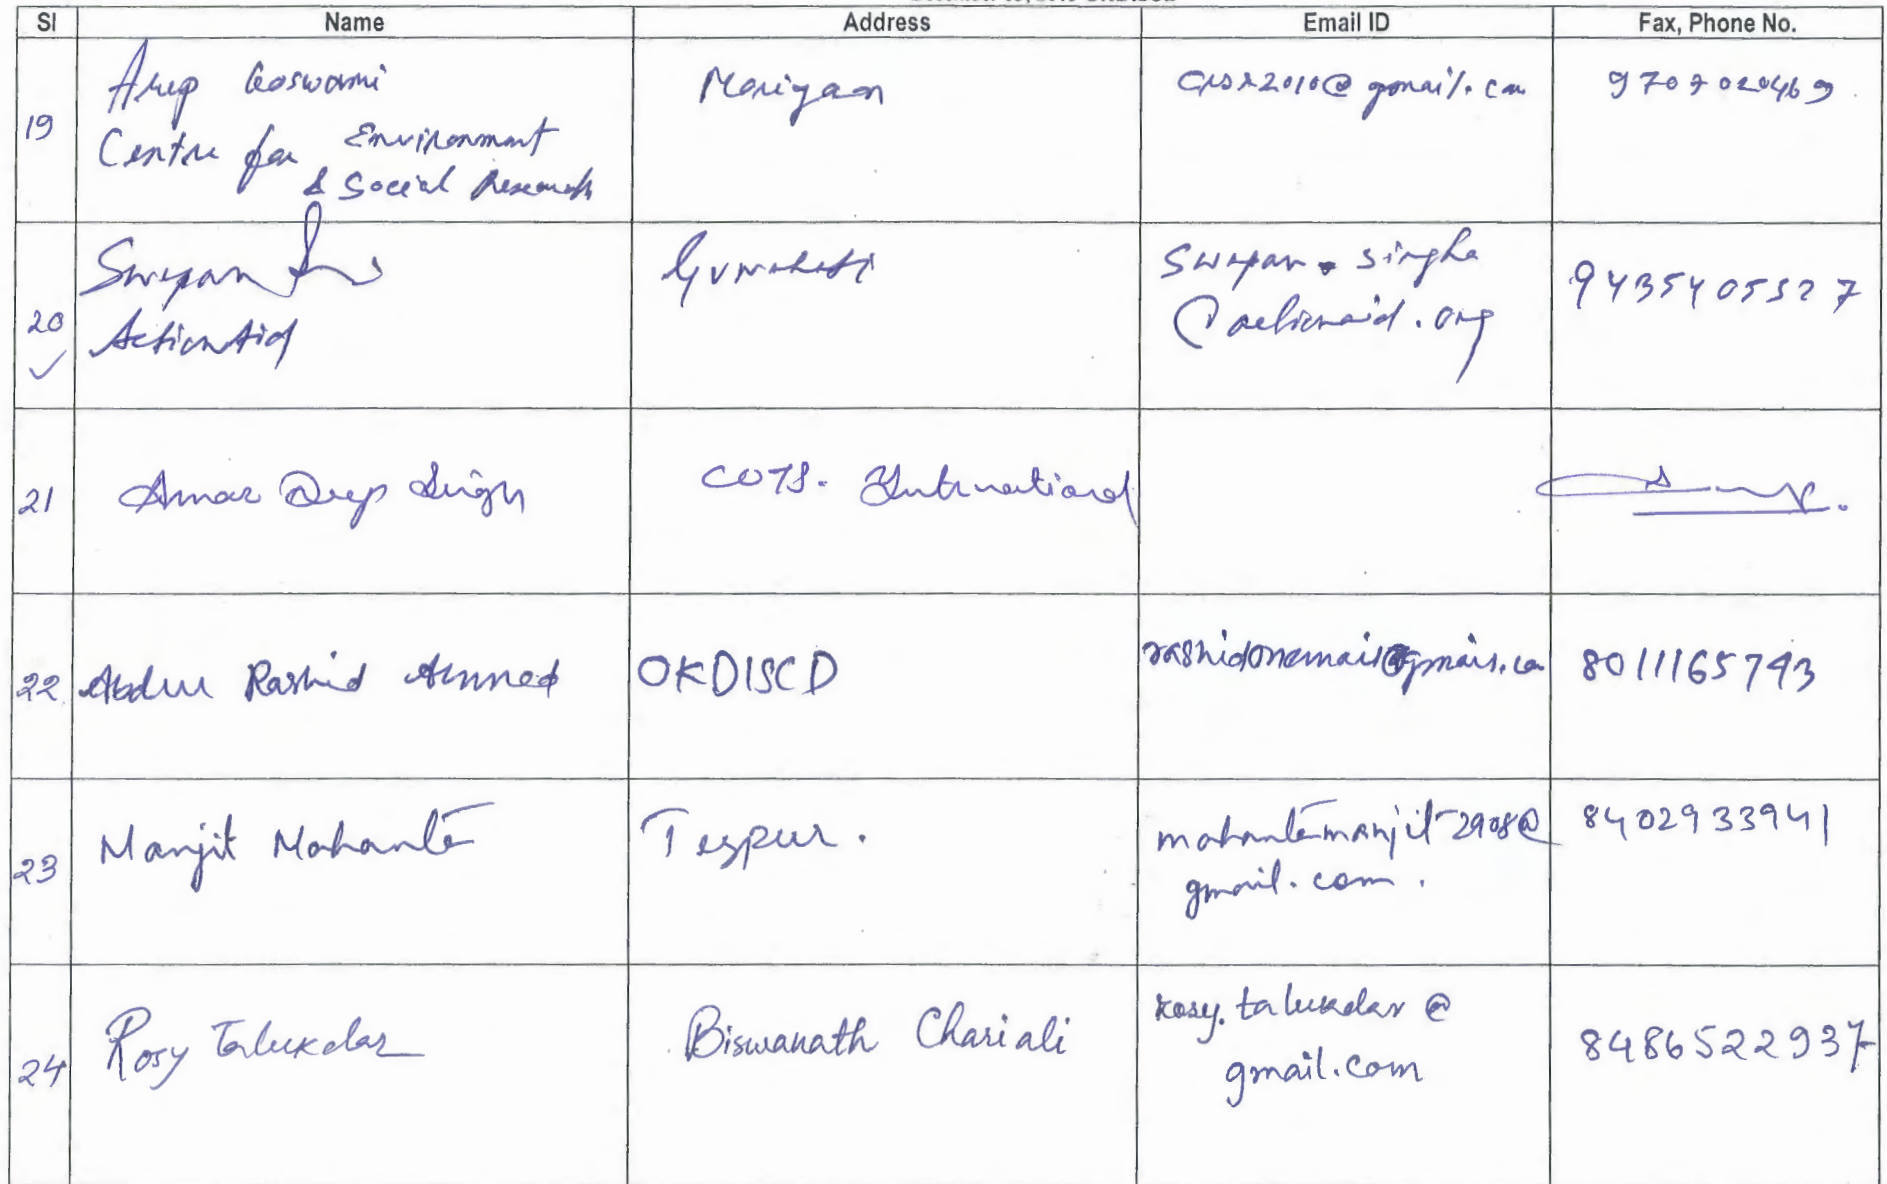 Sl Name Address Email ID Fax, Phone No.
19
Arup Goswami
Centre for Environment
& Social Research
Morigaon
cesr2010@gmail.com
9707020469
20
Swapan
ActionAid
Guwahati
Swapan.singha
@actionaid.org
9435405327
21
Amar Deep Singh
COTS. International
22
Abdur Rashid Ahmed
OKDISCD
rashidonemail@gmail.com
8011165743
23
Manjit Mahanta
Tezpur.
mahantamanjit2908@
gmail.com.
8402933941
24
Rosy Talukdar
Biswanath Chariali
rosy.talukdar@
gmail.com
8486522937